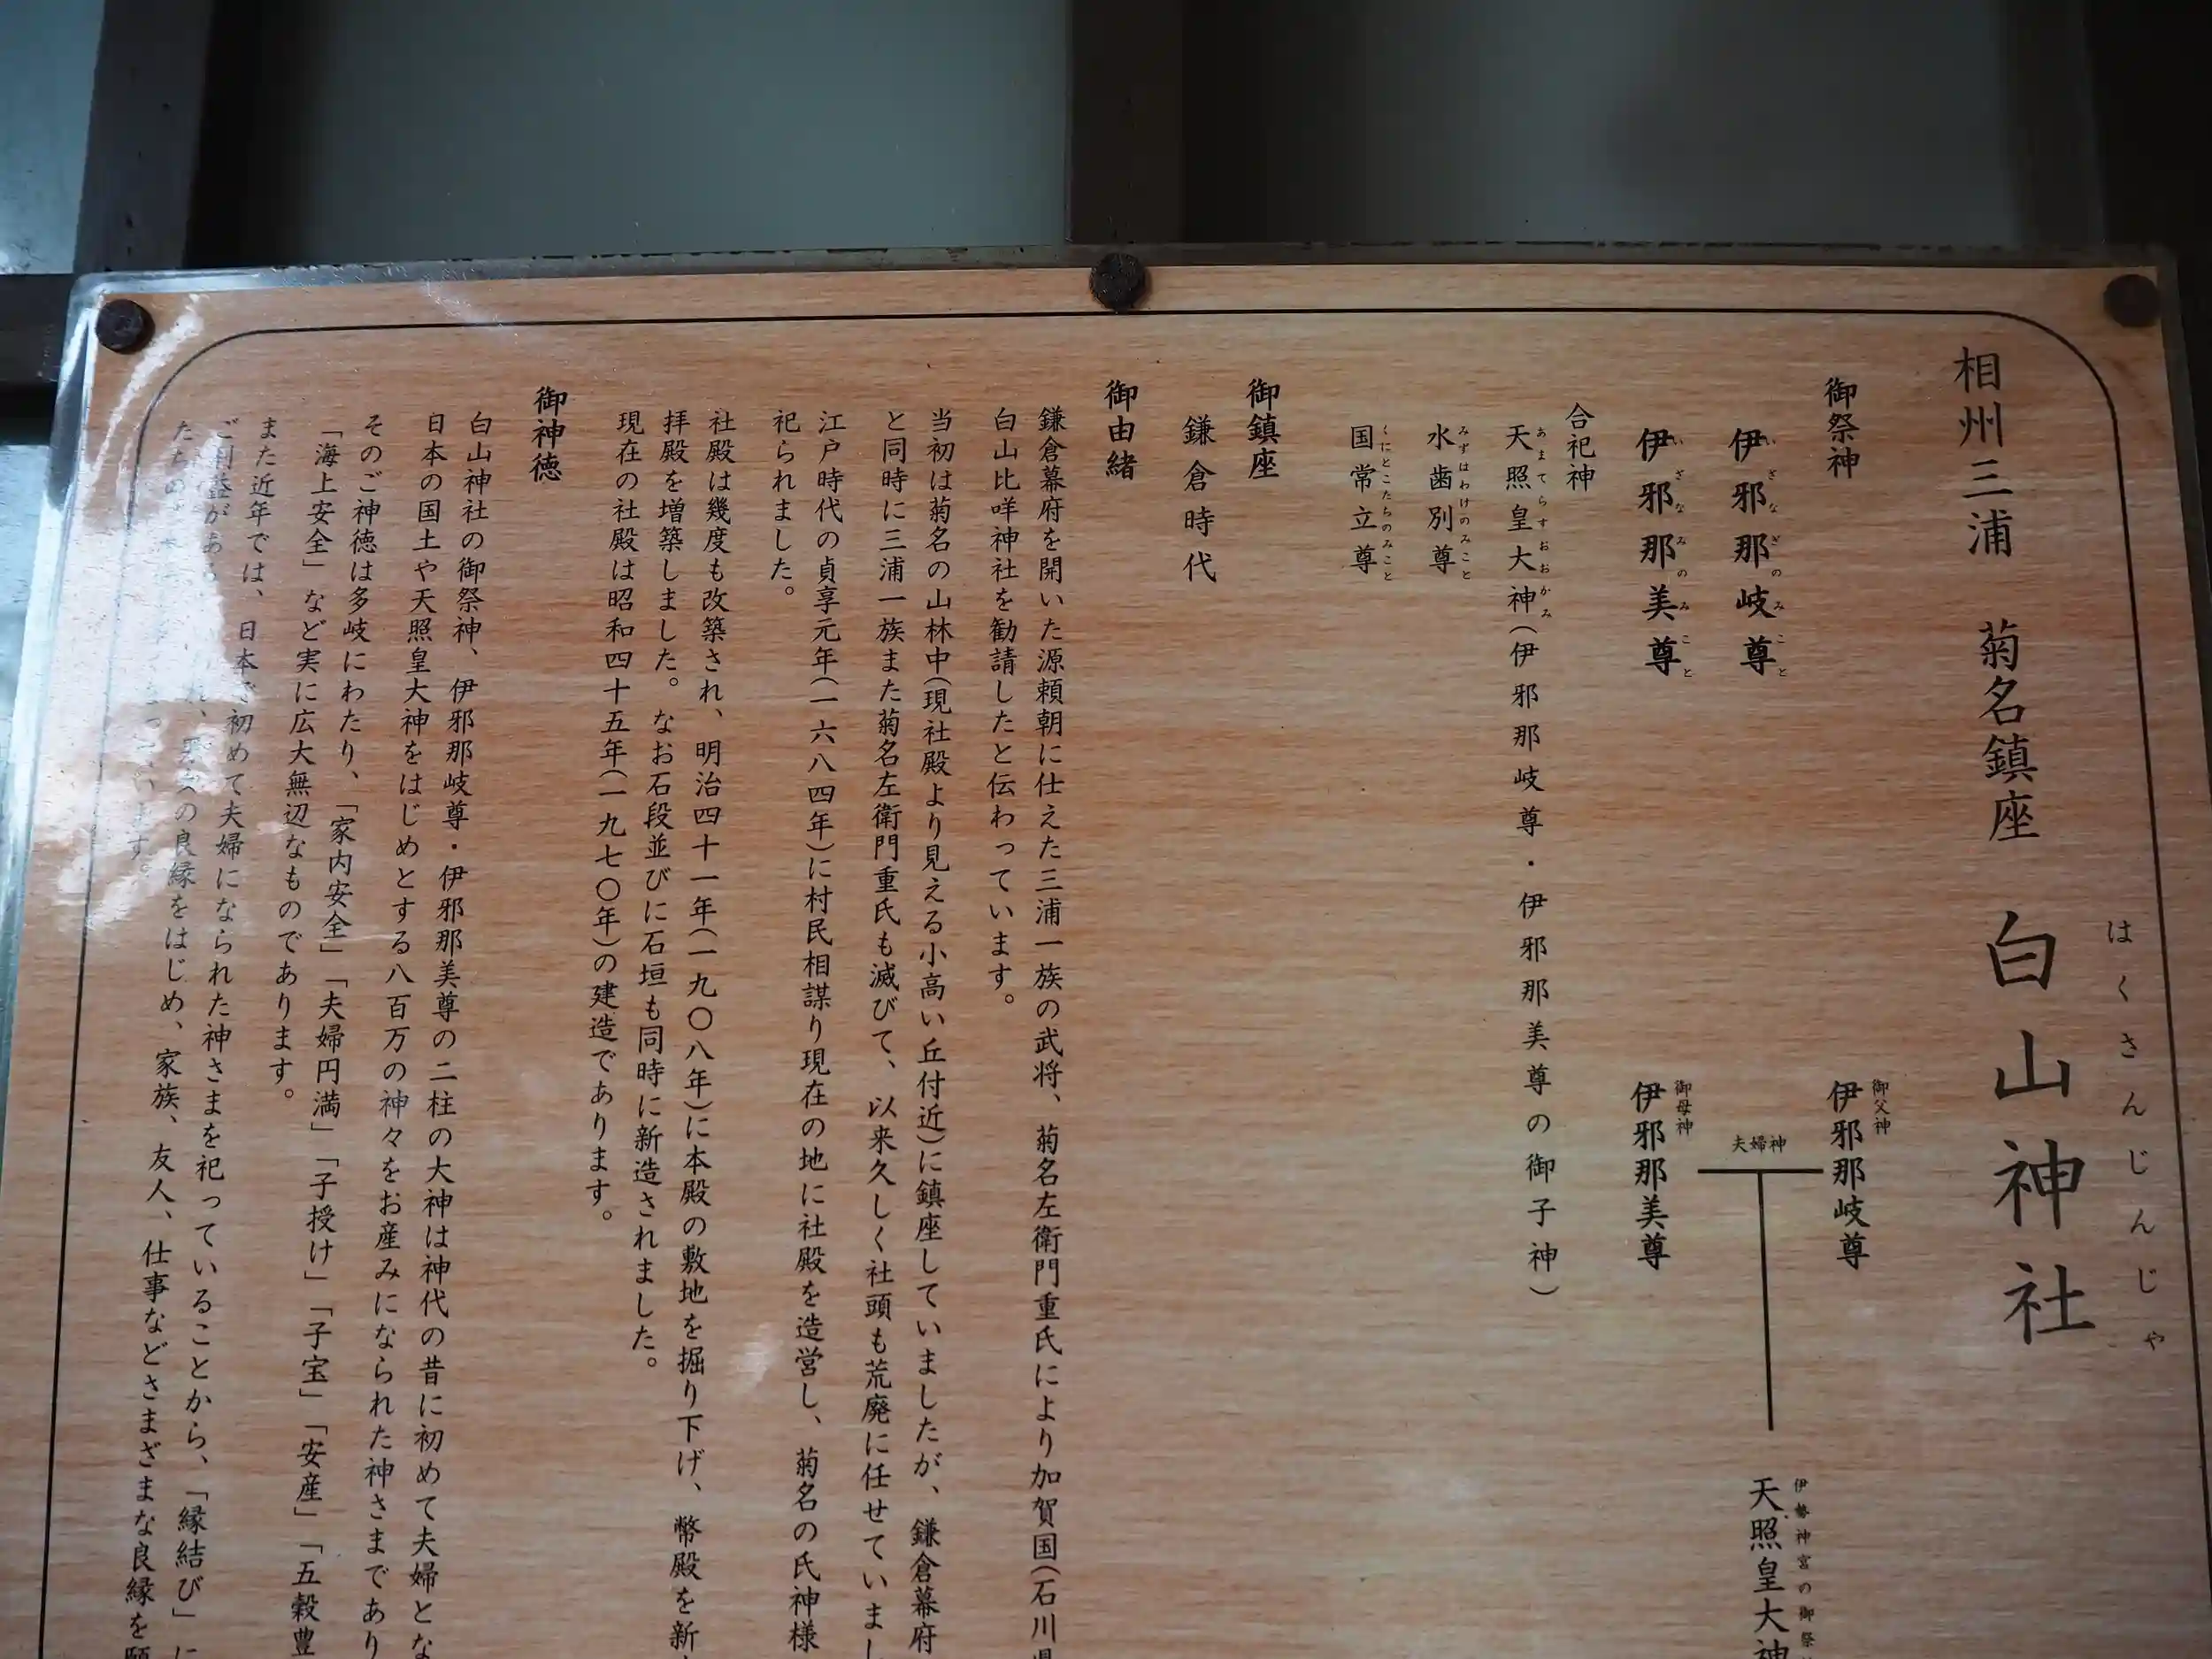 相州三浦 菊名鎮座 白山神社
はくさんじんじゃ
御祭神
伊邪那岐尊
いざなぎのみこと
伊邪那美尊
いざなみのみこと
御父神
伊邪那岐尊
夫婦神
御母神
伊邪那美尊
伊勢神宮の御祭
天照皇大神
合祀神
天照皇大神(伊邪那岐尊・伊邪那美尊の御子神)
あまてらすおおかみ
水歯別尊
みずはわけのみこと
国常立尊
くにとこたちのみこと
御鎮座
鎌倉時代
御由緒
鎌倉幕府を開いた源頼朝に仕えた三浦一族の武将、菊名左衛門重氏により加賀国(石川県
白山比咩神社を勧請したと伝わっています。
当初は菊名の山林中(現社殿より見える小高い丘付近)に鎮座していましたが、鎌倉幕府
と同時に三浦一族また菊名左衛門重氏も滅びて、以来久しく社頭も荒廃に任せていまし
江戸時代の貞享元年(一六八四年)に村民相謀り現在の地に社殿を造営し、菊名の氏神様
祀られました。
社殿は幾度も改築され、明治四十一年(一九〇八年)に本殿の敷地を掘り下げ、幣殿を新
拝殿を増築しました。なお石段並びに石垣も同時に新造されました。
現在の社殿は昭和四十五年(一九七〇年)の建造であります。
御神徳
白山神社の御祭神、伊邪那岐尊・伊邪那美尊の二柱の大神は神代の昔に初めて夫婦とな
日本の国土や天照皇大神をはじめとする八百万の神々をお産みになられた神さまであり
そのご神徳は多岐にわたり、「家内安全」「夫婦円満」「子授け」「子宝」「安産」「五穀豊
「海上安全」など実に広大無辺なものであります。
また近年では、日本で初めて夫婦になられた神さまを祀っていることから、「縁結び」に
ご利益があ の良縁をはじめ、家族、友人、仕事などさまざまな良縁を願
たちの います。